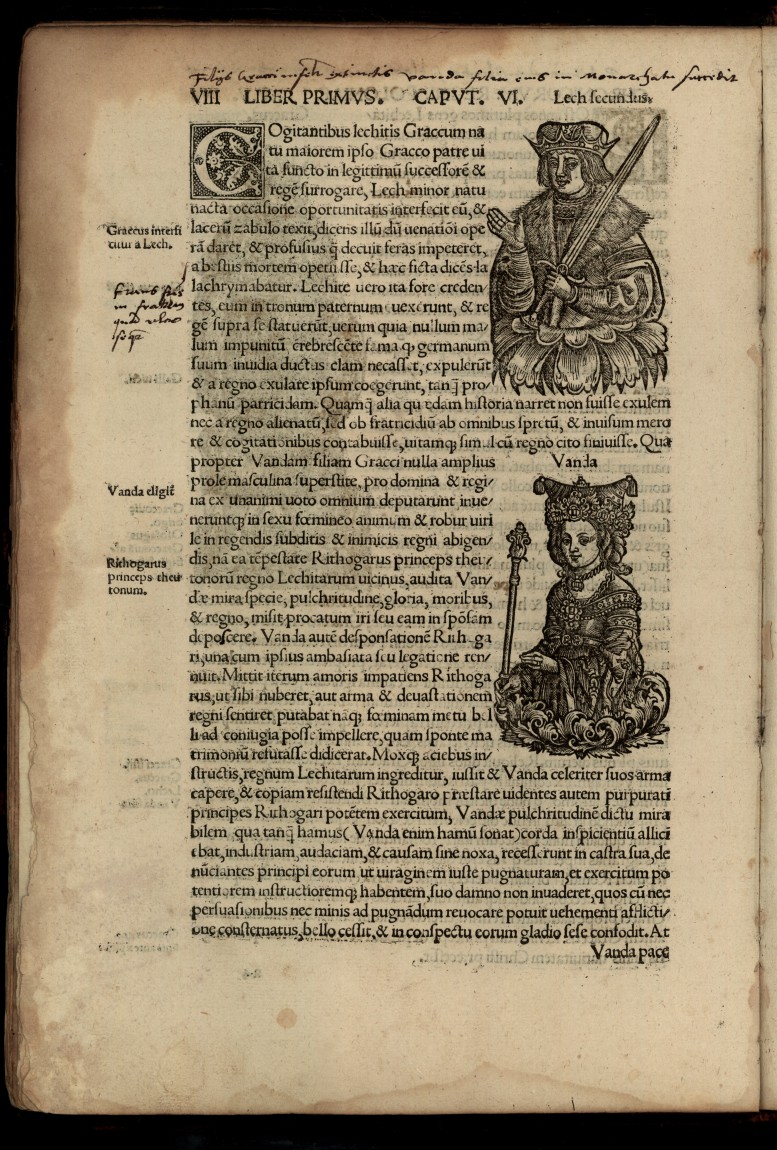 Filijs Gracci in fratrih extinctis vanda filia eius in Monarchatu succedit
VIII LIBER PRIMVS. CAPVT. VI. Lech secundus.
COgitantibus lechitis Graccum na
tu maiorem ipso Gracco patre ui
ta functo in legittimū successorē &
regē surrogare, Lech minor natu
nacta occasione oportunitatis interfecit eū, &
lacerū zabulo texit, dicens illū dū uenatiōi ope
rā daret, & profusius q̄ decuit feras impeteret,
a bestiis mortem opetiisse, & hæc ficta dicēs la
lachrymabatur. Lechite uero ita fore creden
tes, eum in tronum paternum euexerunt, & re
gē supra se statuerūt, uerum quia nullum ma/
lum impunitū crebrescēte fama, q, germanum
suum inuidia ductus clam necasset, expulerūt
& a regno exulare ipsum coegerunt, tanq̄ pro/
phanū parricidam. Quamq̄ alia quædam historia narret non fuisse exulem
nec a regno alienatū, sed ob fratricidiū ab omnibus spretū, & inuisum mero
re & cogitationibus contabuisse, uitamq; simul cū regno cito finiuisse. Qua
propter Vandam filiam Gracci nulla amplius
Vanda
prole masculina superstite, pro domina & regi/
na ex unanimi uoto omnium deputarunt inue/
neruntq; in sexu fœmineo animum & robur uiri
le in regendis subditis & inimicis regni abigen/
dis, nā ea tēpestate Rithogarus princeps theu/
tonorū regno Lechitarum uicinus, audita Van/
dæ mira specie, pulchritudine, gloria, moribus,
& regno, misit procatum iri seu eam in spōsam
deposcere. Vanda autē desponsationē Rithoga
ri, una cum ipsius ambasiata seu legatione ren/
nuit. Mittit iterum amoris impatiens Rithoga
rus, ut sibi nuberet, aut arma & deuastationem
regni sentiret, putabat naq; fœminam metu bel
li ad coniugia posse impellere, quam sponte ma
trimoniū refutasse didicerat. Moxq; aciebus in/
structis, regnum Lechitarum ingreditur, iussit & Vanda celeriter suos arma
capere, & copiam resistendi Rithogaro præstare uidentes autem purpurati
principes Rithogari potētem exercitum, Vandæ pulchritudinē dictu mira
bilem qua tanq̄ hamus (Vanda enim hamū sonat) corda inspicientiū allici
ebat, industriam, audaciam, & causam sine noxa, recesserunt in castra sua, de
nūciantes principi eorum ut uiraginem iuste pugnaturam, et exercitum po
tentiorem instructioremq; habentem, suo damno non inuaderet, quos cū nec
persuasionibus nec minis ad pugnādum reuocare potuit uehementi afflicti/
one consternatus, bello cessit, & in conspectu eorum gladio sese confodit. At
Vanda pace
Graccus interfi
citur a Lech.
Vanda eligit̄
Rithogarus
princeps theu
tonum.